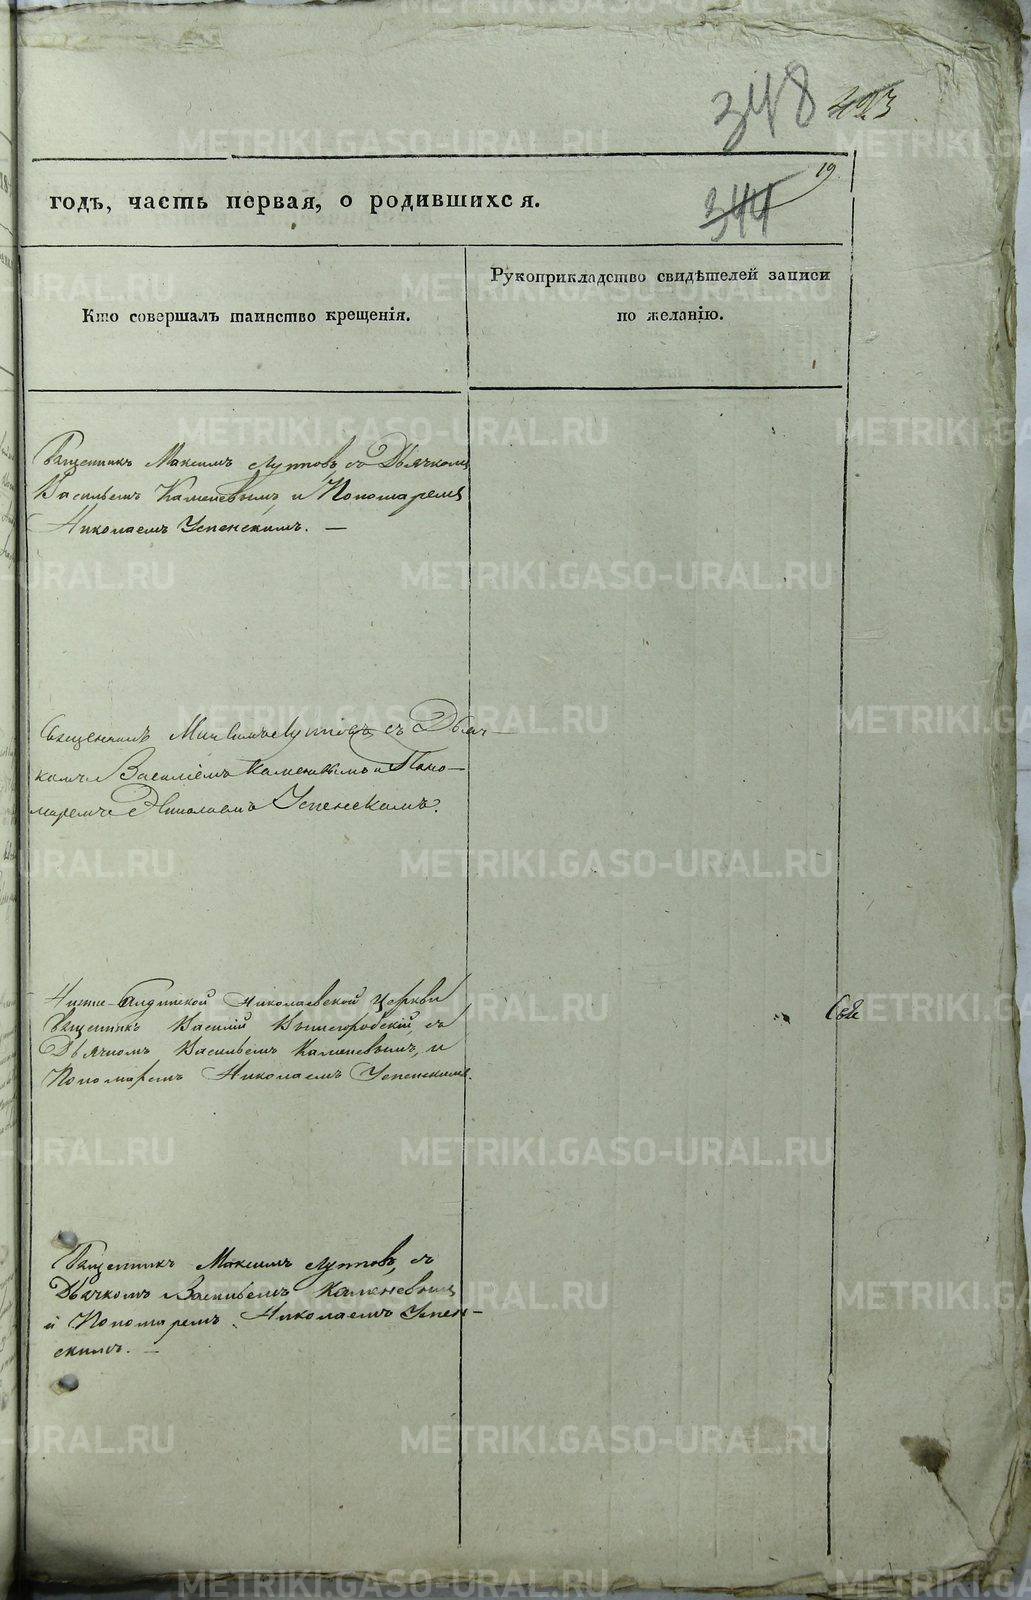 348 423
19
344
годъ, часть первая, о родившихся.
Кто совершалъ таинство крещенія.
Рукоприкладство свидѣтелей записи
по желанію.
Священникъ Максимъ Луттовъ съ Дьячкомъ
Васильемъ Каменевымъ, и Пономаремъ
Николаемъ Успенскимъ. —
Священникъ Максимъ Луттовъ съ Дьяч-
комъ Василіемъ Каменевымъ и Поно-
маремъ Николаемъ Успенскимъ.
Николаевской церкви
Священникъ Василій Вышегородскій, съ
Дьячкомъ Васильемъ Каменевымъ, и
Пономаремъ Николаемъ Успенскимъ.
Священникъ Максимъ Луттовъ, съ
Дьячкомъ Васильемъ Каменевымъ
и Пономаремъ Николаемъ Успен-
скимъ. —
METRIKI.GASO-URAL.RU